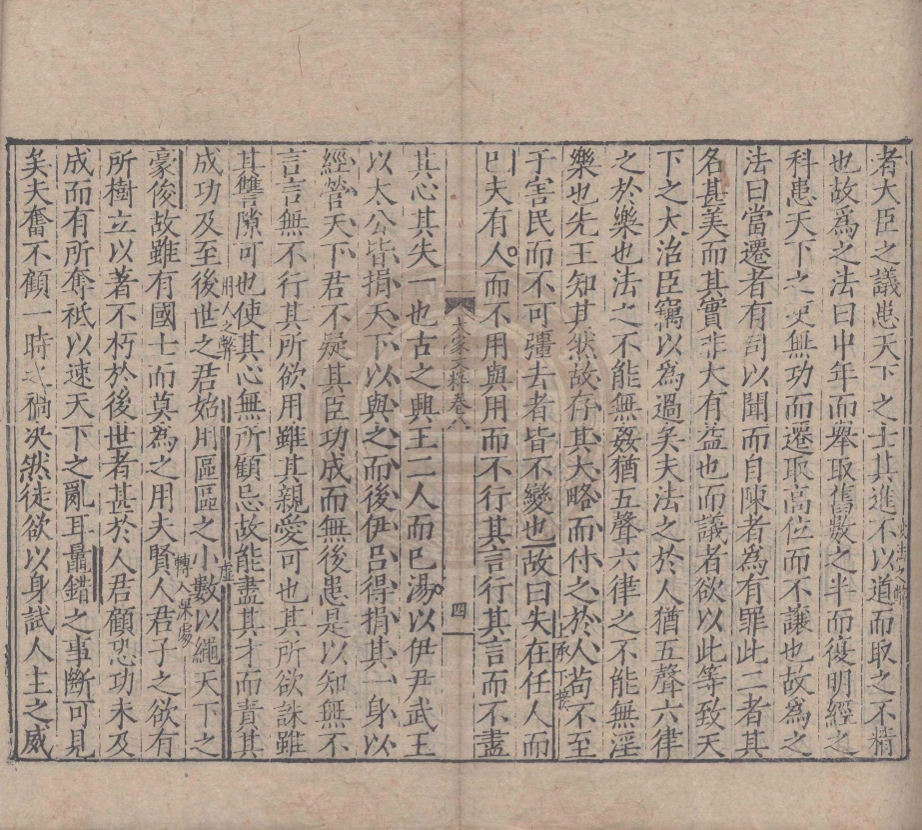 者大臣之議患天下之士其進不以道而取之不精
也故爲之法曰中年而舉取舊數之半而復明經之
科患天下之吏無功而遷取高位而不讓也故爲之
法曰當遷者有司以聞而自陳者爲有罪此二者其
名甚美而其實非大有益也而議者欲以此等致天
下之大治臣竊以爲過矣夫法之於人猶五聲六律
之於樂也法之不能無姦猶五聲六律之不能無淫
樂也先王知其然故存其大略而付之於人苟不至
于害民而不可彊去者皆不變也故曰失在任人而
已夫有人而不用與用而不行其言行其言而不盡
大家文粹卷八
四
其心其失一也古之興王二人而已湯以伊尹武王
以太公皆捐天下以與之而後伊呂得捐其一身以
經營天下君不疑其臣功成而無後患是以知無不
言言無不行其所欲用雖其親愛可也其所欲誅雖
其讐隙可也使其心無所顧忌故能盡其才而責其
用人之弊
虛
成功及至後世之君始用區區之小數以繩天下之
轉入深處
豪俊故雖有國士而莫爲之用夫賢人君子之欲有
所樹立以著不朽於後世者甚於人君顧恐功未及
成而有所奪祗以速天下之亂耳鼂錯之事斷可見
矣夫奮不顧一時之禍决然徒欲以身試人主之威